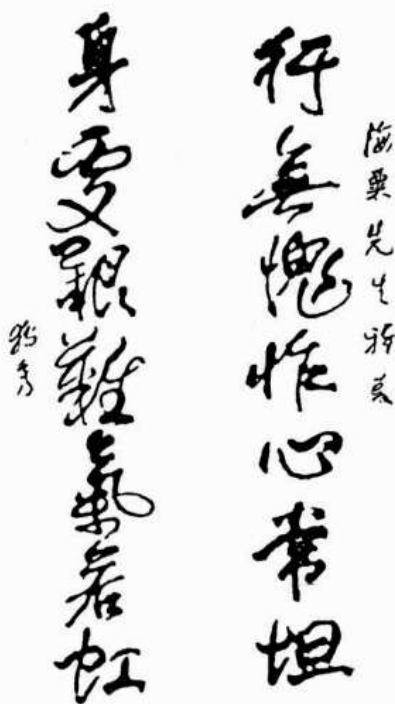 海粟先生雅
行無愧怍心常坦
身處艱難氣若虹
獨秀